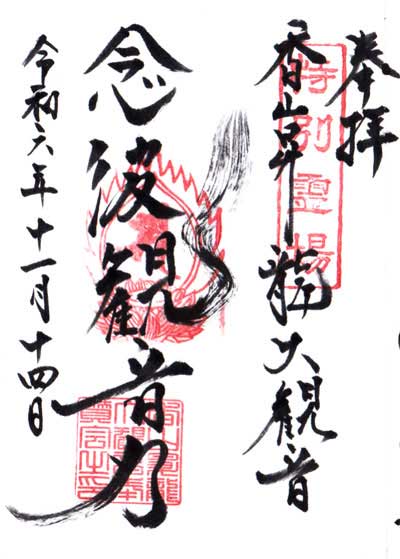 奉拝
特別霊場
香山昇龍大観音
念彼観音力
令和六年十一月十四日